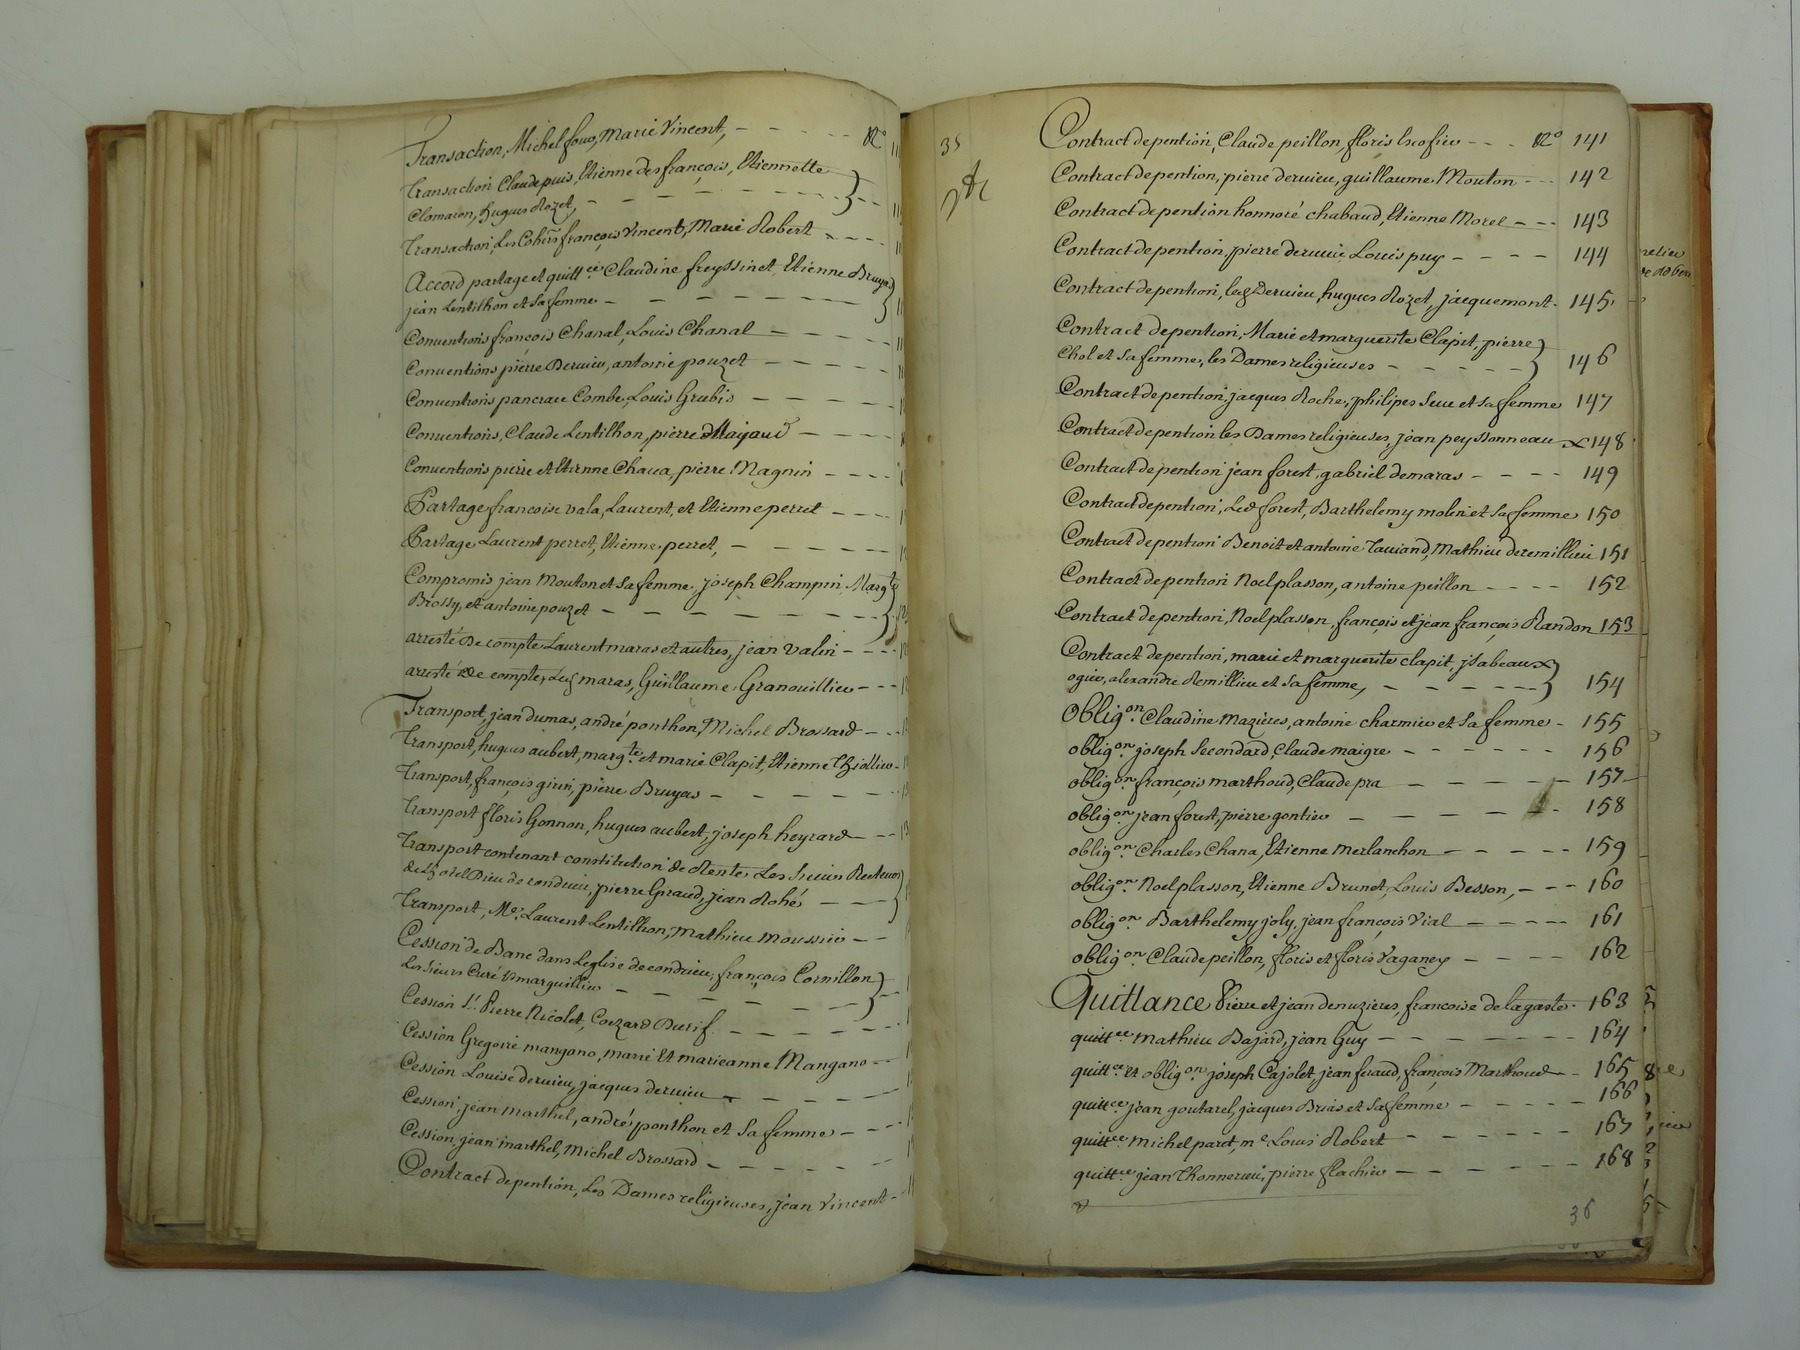 Transaction, Michel foux, Marie Vincent, - - - - - N° 11
Transaction Claude puis, Etienne des françois, Etiennette
Clomaron, hugues Rozet, - - - - - - - 11
Transaction, Les Cohers françois Vincent, Marie Robert - - - -
Accord partage et quittce Claudine freyssinet, Etienne Bruyas
jean Lentilhon et Sa femme - - - - - - -
Conventions françois Chanal, Louis Chanal - - - -
Conventions pierre Dervieu, antoine pouzet - - - - -
Conventions pancrace Combe, Louis Grubis - - - - -
Conventions, Claude Lentilhon, pierre Mayaud - - - -
Conventions pierre et Etienne Chava, pierre Magnin - - - -
Partage francoise vala, Laurent, et Etienne perret - - - -
Partage Laurent perret, Etienne perret, - - - - - -
Compromis jean Mouton et Sa femme, joseph Champin, Margte
Brossy, et antoine pouzet - - - - - - - -
arresté de compte Laurent maras et autres, jean valin - - - -
arresté de compte, Led maras, Guillaume Granouillieu - - -
Transport, jean dumas, andré ponthon, Michel Brossard - - -
Transport, hugues aubert, margte et marie Clapit, Etienne Thiollieu -
Transport, françois girin, pierre Bruyas - - - - - - -
Transport floris Gonnon, hugues aubert, joseph heyrard - - -
Transport contenant constitution de Rente Les Sieurs Recteurs
de Lhotel Dieu de condrieu, pierre Giraud, jean Rohé - - -
Transport, Me Laurent Lentilhon, mathieu moussier - -
Cession de Banc dans Leglise de condrieu, françois Cornillon
Les Sieurs Curé & marguillier - - - - - - -
Cession Sr Pierre Nicolet, Cozard Durif - - - - - -
Cession Gregoire mangano, marie Et marieanne Mangano - -
Cession Louise dervieu, jacques dervieu - - - - -
Cession, jean marthel, andré ponthon et Sa femme - - -
Cession, jean marthel, Michel Brossard - - - - - -
Contract de pention, Les Dames religieuses, jean Vincent -
35
Contract de pention, Claude peillon, floris - - - N° 141
Contract de pention, pierre dervieu, guillaume Mouton - - - 142
Contract de pention honnoré chabaud, Etienne Morel - - - 143
Contract de pention, pierre dervieu Louis puy - - - - 144
Contract de pention, led Dervieu, hugues Rozet, jacquemont - 145
Contract de pention, Marie et marguerite Clapit, pierre
Chol et Sa femme, les Dames religieuses - - - - - 146
Contract de pention, jacques Roche, philipes Seve et Sa femme 147
Contract de pention les Dames religieuses, jean peyssonneau x 148
Contract de pention jean forest, gabriel demaras - - - - 149
Contract de pention, Led forest, Barthelemy molin et Sa femme 150
Contract de pention Benoit et antoine Tauiand, Mathieu deremillieu 151
Contract de pention Noel plasson, antoine peillon - - - - 152
Contract de pention, Noel plasson, françois et jean françois Randon 153
Contract de pention, marie et marguerite clapit, jsabeaux
ogier, alexandre Remillieu et Sa femme, - - - - - - 154
Obligon Claudine Mazieres, antoine charmieu et Sa femme - 155
obligon joseph Secondard, Claude maigre - - - - - - 156
obligon françois marthoud, Claude pra - - - - - 157
obligon jean forest, pierre gontier - - - - - - 158
obligon Charles Chana, Etienne Merlanchon - - - - - 159
obligon Noel plasson, Etienne Brunet, Louis Besson, - - - 160
obligon Barthelemy joly, jean françois Vial - - - - - 161
obligon Claude peillon, floris et floris Vaganey - - - - 162
Quittance Pierre et jean denuzieres, francoise de lagaste - 163
quittce mathieu Bajard, jean Guy - - - - - - - 164
quittce et obligon joseph Cajolet, jean feraud, françois Marthoud - 165
quittce jean goutarel, jacques Brias et Sa femme - - - - 166
quittce michel parot, me Louis Robert - - - - - - 167
quittce jean Thonnerieu, pierre flachier - - - - - - 168
36